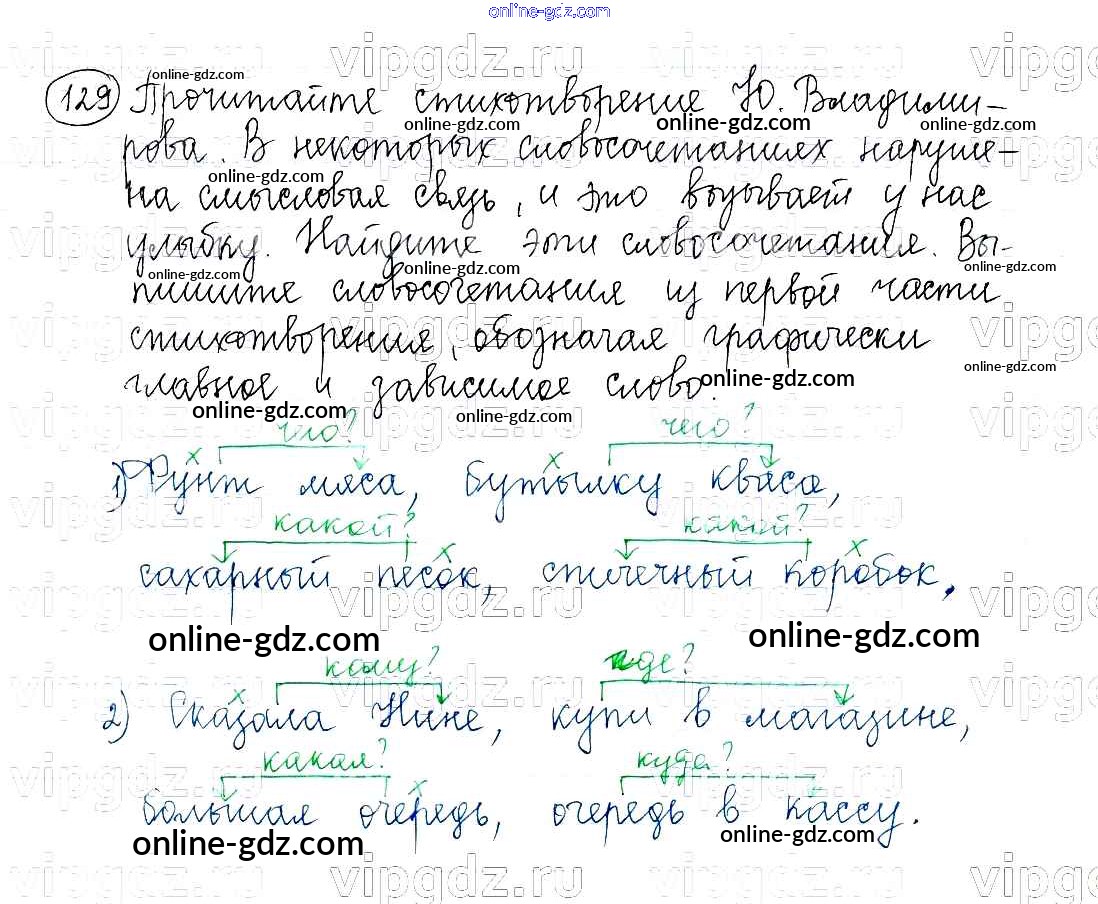 online-gdz.com
129 Прочитайте стихотворение Ю. Владими-
рова. В некоторых словосочетаниях наруше-
на смысловая связь, и это вызывает у нас
улыбку. Найдите эти словосочетания. Вы-
пишите словосочетания из первой части
стихотворения, обозначая графически
главное и зависимое слово.
чего? чего?
1) Фунт мяса, бутылку кваса,
какой? какой?
сахарный песок, спичечный коробок,
online-gdz.com online-gdz.com
кому? где?
2) Сказала Нине, купи в магазине,
какая? куда?
большая очередь, очередь в кассу.
online-gdz.com online-gdz.com